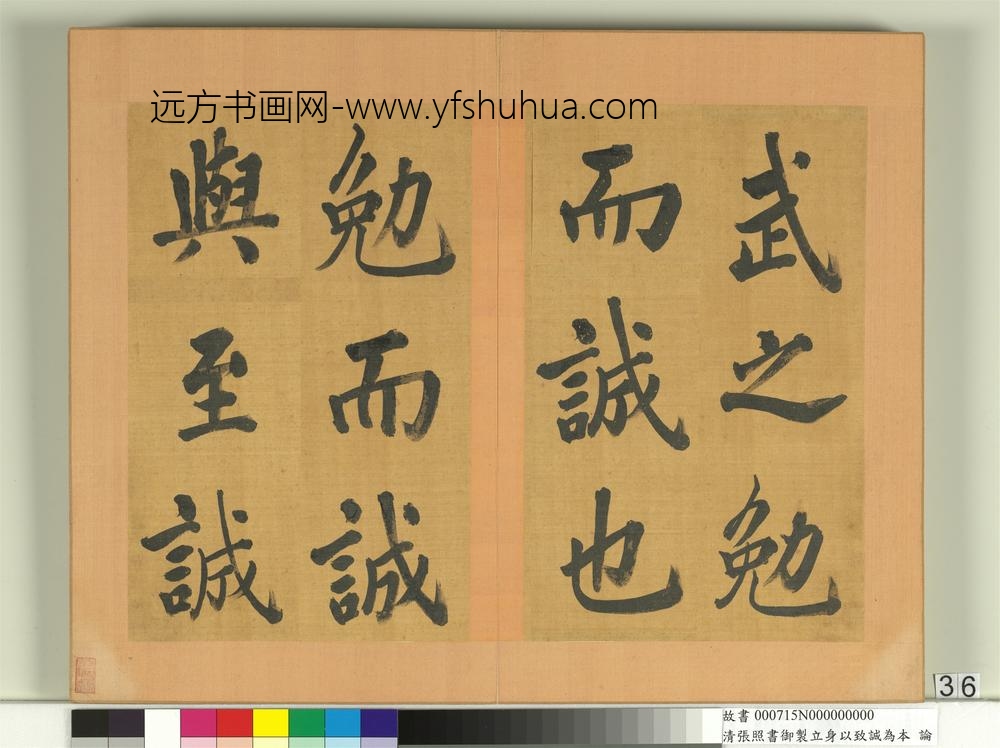 远方书画网-www.yfshuhua.com
武之勉
而誠也
勉而誠
與至誠
36
故書 000715N000000000
清張照書御製立身以致誠為本 論